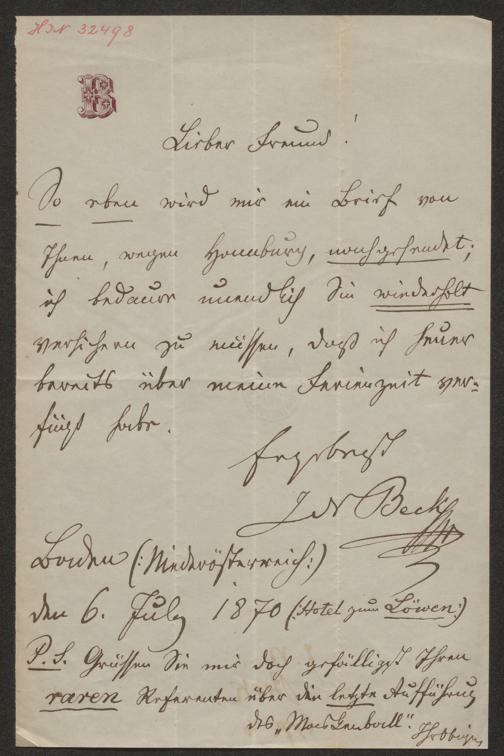 HIN 32498
B
Lieber Freund!
So eben wird mir ein Brief von
Ihnen, wegen Homburg, nachgesendet;
ich bedaure unendlich Sie wiederholt
versichern zu müssen, daß ich heuer
bereits über meine Ferienzeit ver-
fügt habe.
Ergebenst
J N Beck
Baden (:Niederösterreich:)
den 6. July 1870 (Hotel zum Löwen:)
P.S. Grüssen Sie mir doch gefälligst Ihren
raren Referenten über die letzte Aufführung
des „Maskenball". Ihr Obiger